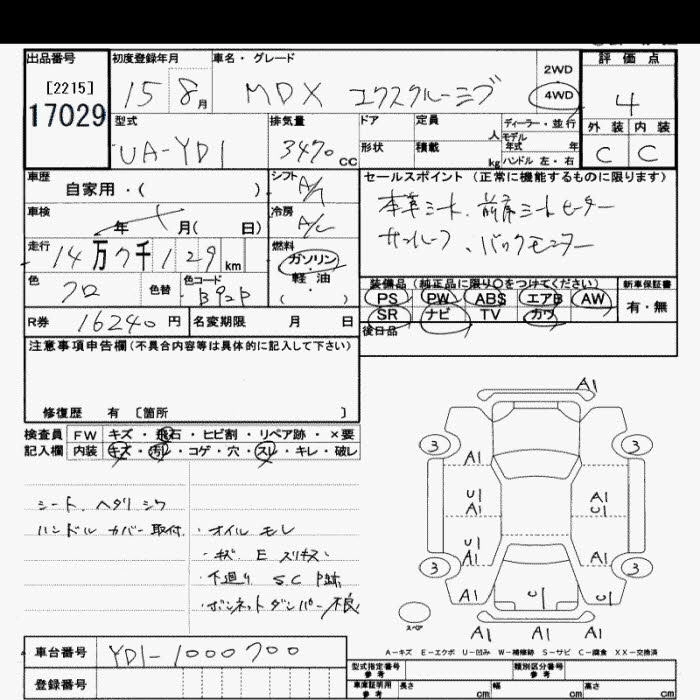 出品番号 初度登録年月 車名・グレード 2WD 評価点
[2215]
17029 15 8月 MDX エクスクルーシブ 4WD 4
型式 排気量 ドア 定員 人 ディーラー・並行 外装 内装
モデル年式 年
UA-YD1 3470cc 形状 積載 kg ハンドル 左・右 C C
車歴 自家用・( ) シフト A/T セールスポイント (正常に機能するものに限ります)
車検 年 月( 日) 冷房 A/C 本革シート、前席シートヒーター
走行 14万7千129km 燃料 ガソリン・ サンルーフ、バックモニター
軽油
( )
色 クロ 色替 色コード B92P 装備品 (純正品に限り○をつけてください) 新車保証書
PS PW ABS エアB AW 有・無
R券 16240円 名変期限 月 日 SR ナビ TV カワ
後日品
注意事項申告欄(不具合内容等は具体的に記入して下さい)
修復歴 有 〔箇所 〕
検査員 FW キズ・飛石・ヒビ割・リペア跡・×要
記入欄 内装 キズ・汚レ・コゲ・穴・スレ・キレ・破レ
シート、ヘタリ シワ
ハンドル カバー 取付
・オイル モレ
・キズ E スリキズ
・下廻り S.C P跡
・ボンネットダンパー不良
A1
3 3
A1
U1 A1
A1 U1
U1
A1 A1
3 3
A1 U1 A1
スペア A1 A1 A1
A-キズ E-エクボ U-凹み W-補修跡 S-サビ C-腐食 XX-交換済
車台番号 YD1-1000700
型式指定番号 参考 類別区分番号 参考
登録番号 車庫証明用 参考 長さ cm 幅 cm 高さ cm